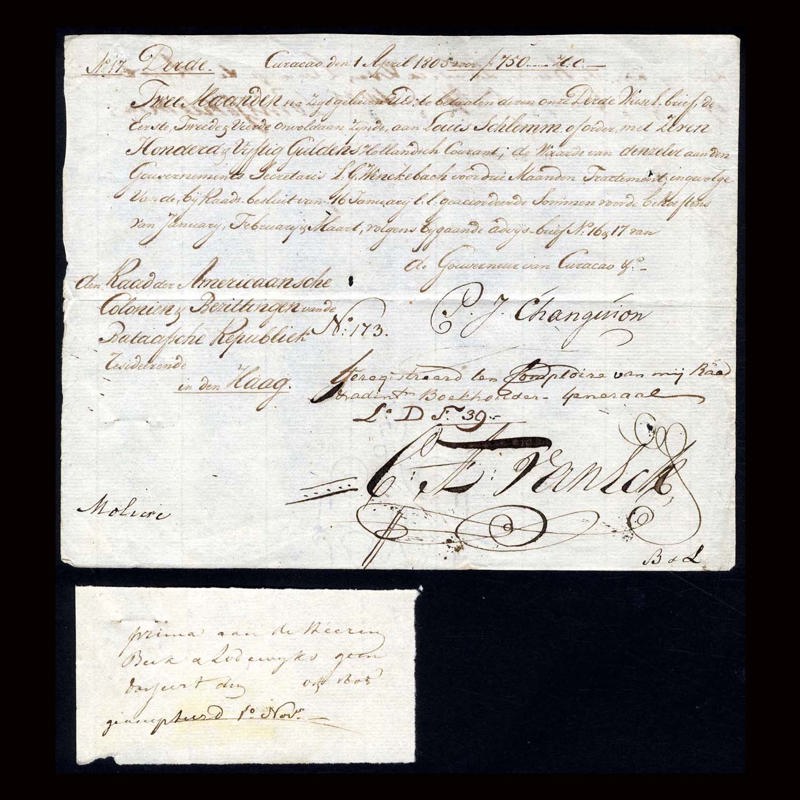 No. 17 Derde. Curacao den 1 April 1805 voor ƒ 750
Twee Maanden na Zigt gelieve UEd: te betaalen deezen onze Derde Wissel brief, de
Eerste, Tweede & Vierde onvoldaan zynde, aan Louis Schlemm of order, met Zeven
Honderd & Vyftig Guldens Hollandsch Courant; de Waarde van denzelve aan den
Gouvernements Secretaris Wenckebach voor drie Maanden Tractement, ingevolge
by Raads besluit van 16 January l.l. geaccordeerde Sommen voor de
van January, February & Maart, volgens bygaande advys-brief No. 16 & 17 van
de Gouverneur van Curacao &c.
den Raad der Americaansche
Colonien & Bezittingen van de
Bataafsche Republiek
Resideerende
in den Haag.
No. 173.
P. J. Changuion
Geregistreerd ten Comptoire van mij Raad
Boekhouder-Generaal
La D Fo. 39
Moliere
B & L
prima aan de Heeren
Beck & Lodewyks geen
1805
geaccepteerd 1o Novr.